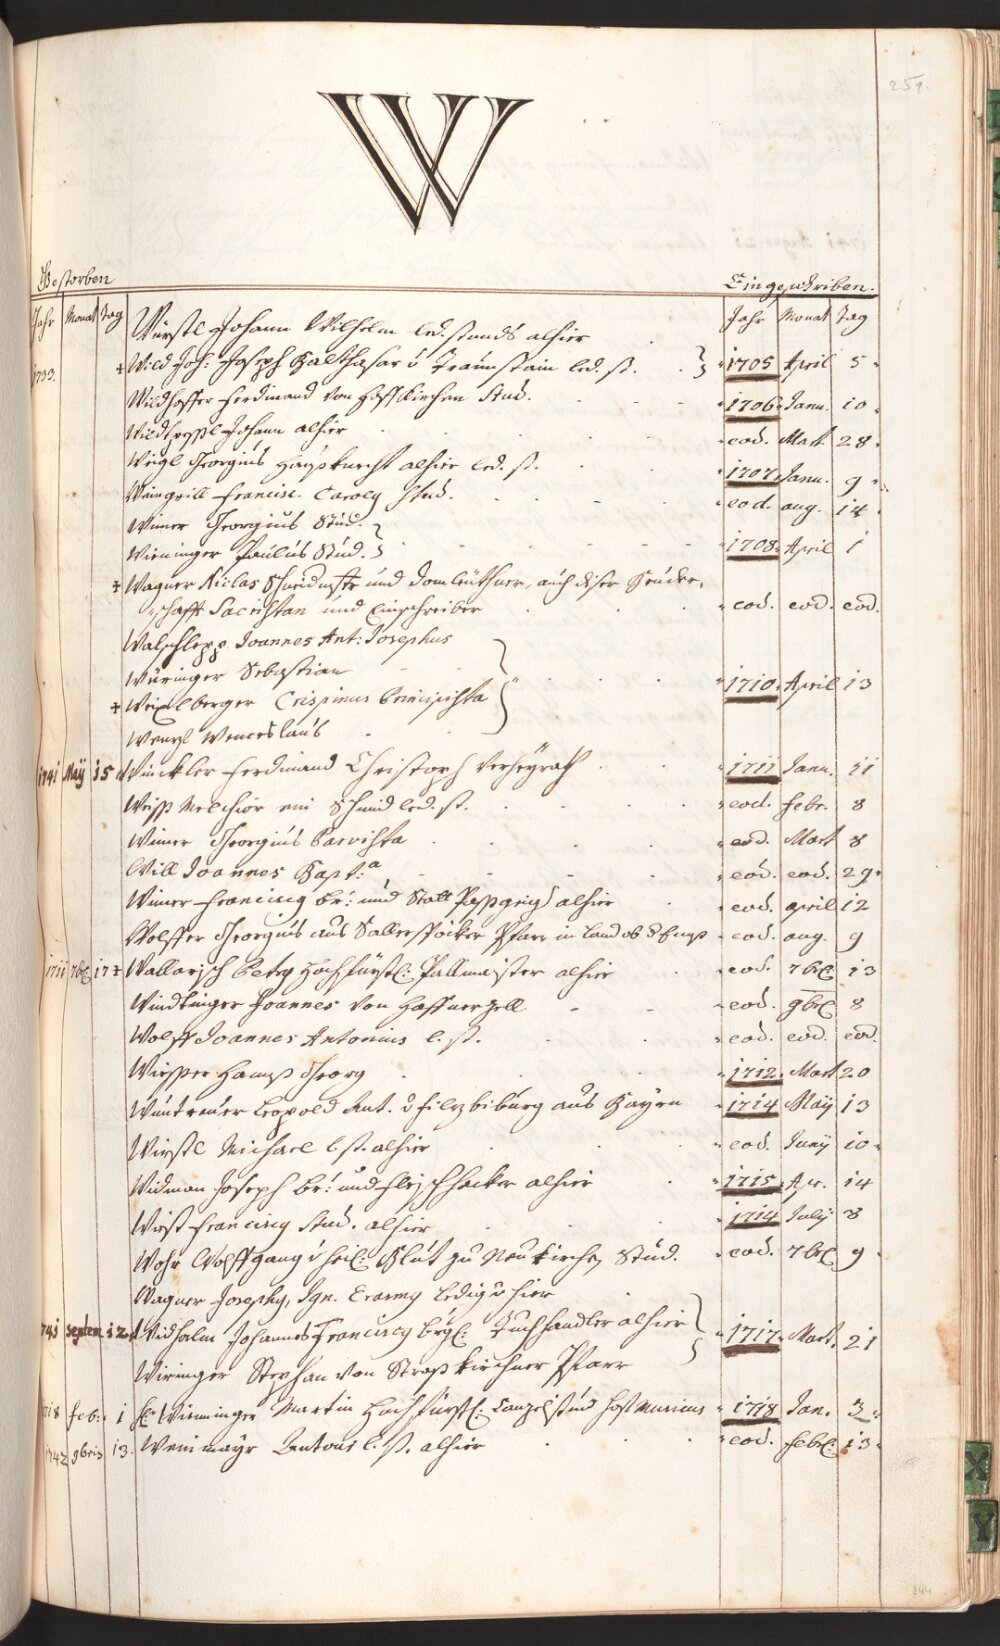 251.
W
Gestorben
Eingeschriben.
Jahr Monat Tag
Jahr Monat Tag
Würstl Johann Wilhelm led. stands alhier
1733. + Wild Joh: Joseph Balthasar v Traunstain led. st. 1705 April 5
Wildhoffer Ferdinand von Hoffkirchen Stud. 1706 Janu. 10
Johann alhier eod. Mart. 28
Weigl Georgius Haußknecht alhier led. st. 1707 Janu. 9
Weingrill Francisc. Caroly Stud. eod. aug. 14
Wimer Georgius Stud.
Wieninger Paulus Stud. 1708 April 1
+ Wagner Niclas Schneidmstr und auch diser Brude-
schafft Sacristan und Einschreiber eod. eod. eod.
Walschlepp Joannes Ant: Josephus
Würinger Sebastian
+ Weixlberger Crispinus Principista 1710 April 13
Wenzl Wenceslaus
1741 Maÿ 15 Winckler Ferdinand Christoph Verheÿrath 1711 Janu. 11
Weiß Melchior ein Schmid led. st. eod. febr. 8
Wimer Georgius Parvista eod. Mart 8
Will Joannes Bapt:a eod. eod. 29
Wimer Franciscy br: und Statt alhier eod. april 12
Wolffer Georgius aus Pfarr in Land ob d Enß eod. aug. 9
1711 7br 17 + Wallasch Petry Hochfürstl: Pallmaister alhier eod. 7br 13
Windtinger Joannes von Haffnerzell eod. 9br 8
Wolff Joannes Antonius l. st. eod. eod. eod.
Wisper Hannß Georg 1712 Mart 20
Leopold Ant. v Filzbiburg aus Bayrn 1714 Maÿ 13
Wirstl Michael l. st. alhier eod. Junÿ 10
Widman Joseph br: und Fleischhacker alhier 1715 Apr. 14
Franciscy Stud. alhier 1714 Julÿ 8
Wohr Wolffgang v heil: Blut zu Neukirchen Stud. eod. 7br 9
Wagner Josephy, Ign. Erasmy ledig v hier
1741 septem 12 Widholm Johannes Franciscy brgl: Tuchhandler alhier 1717 Mart. 21
Wiringer Stephan von Straßkirchner Pfarr
1718 feb: 1 Wieninger Martin Hochfürstl: Hoff Musicus 1718 Jan. 3
1742 9bris 13 Weinmayr Antoni l. st. alhier eod. febr. 13
X
Y
244